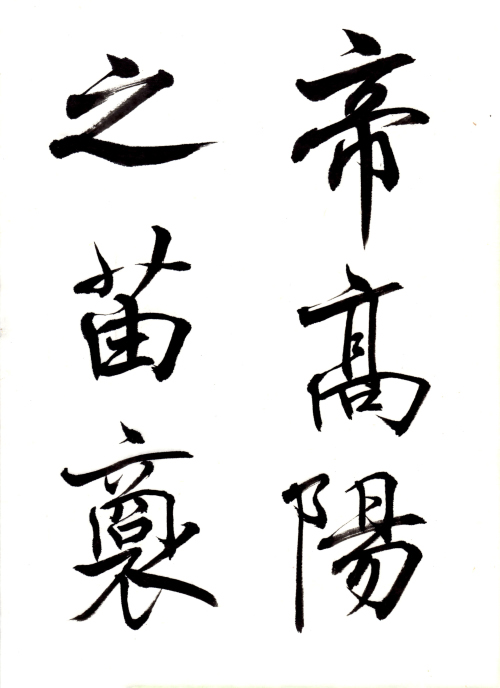 帝髙陽
之苗裔